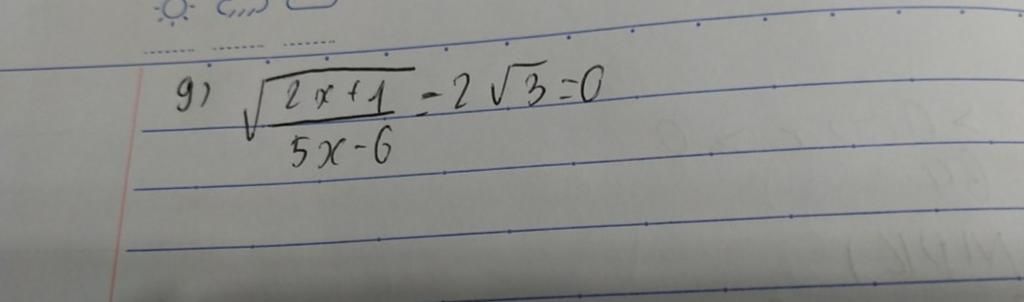 g) √(2x+1)/(5x-6) - 2√3 = 0